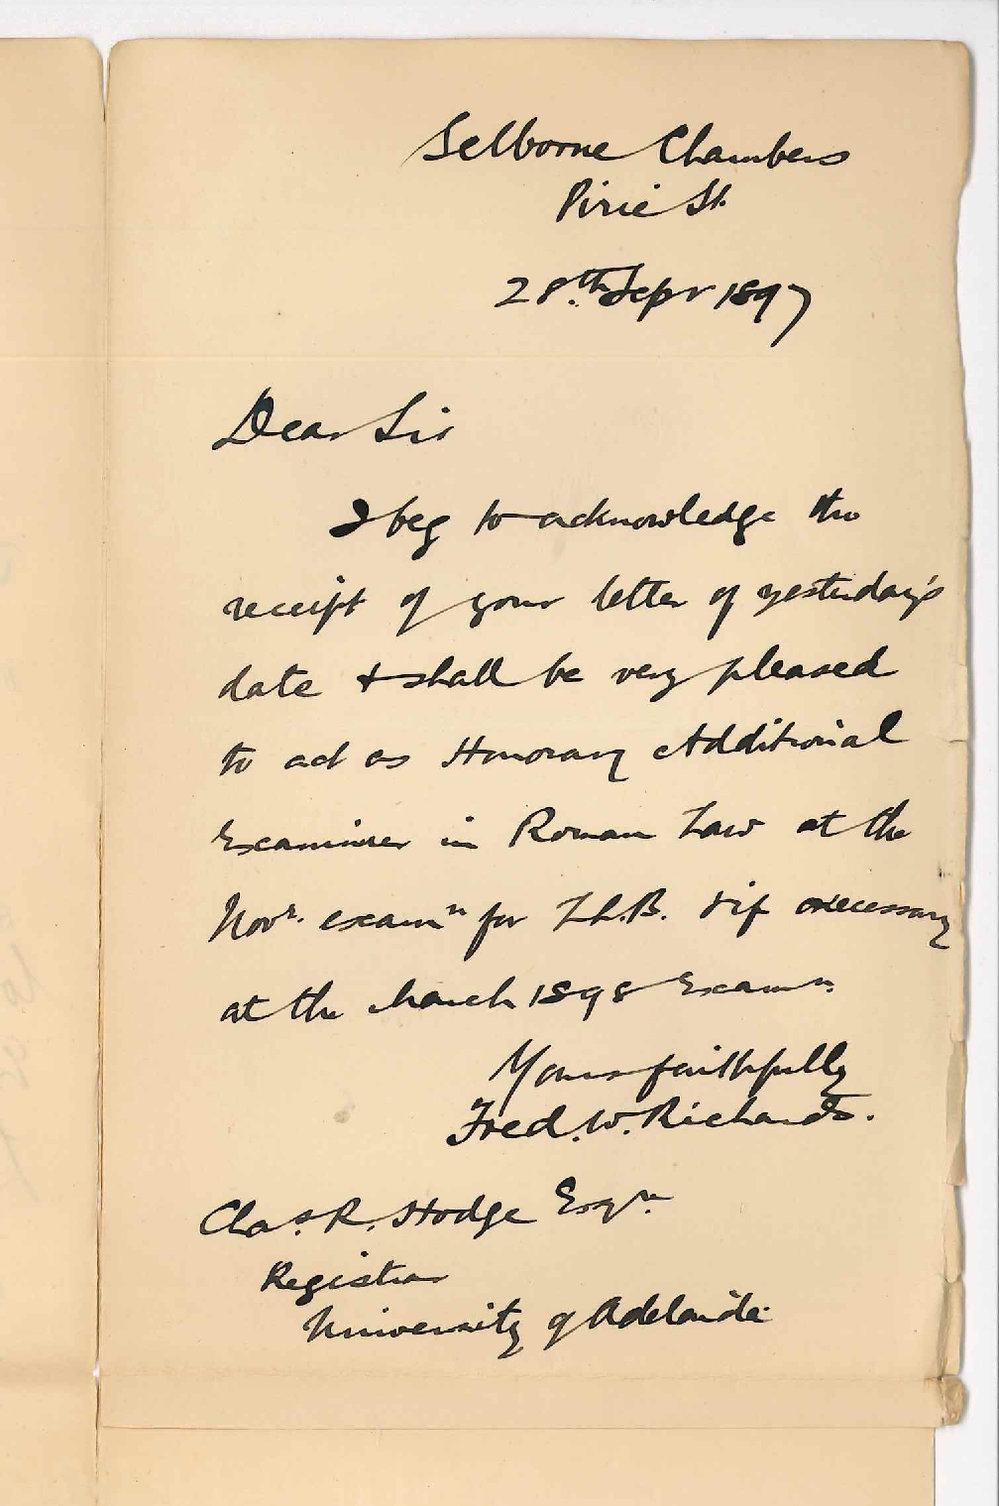 Selborne Chambers
Pirie St.
28th Sepr 1897
Dear Sir
I beg to acknowledge the
receipt of your letter of yesterday's
date & shall be very pleased
to act as Honorary Additional
Examiner in Roman Law at the
Novr. examn for LL.B. & if necessary
at the March 1898 Examn.
Yours faithfully
Fred. W. Richards.
Chas. R. Hodge Esqre.
Registrar
University of Adelaide